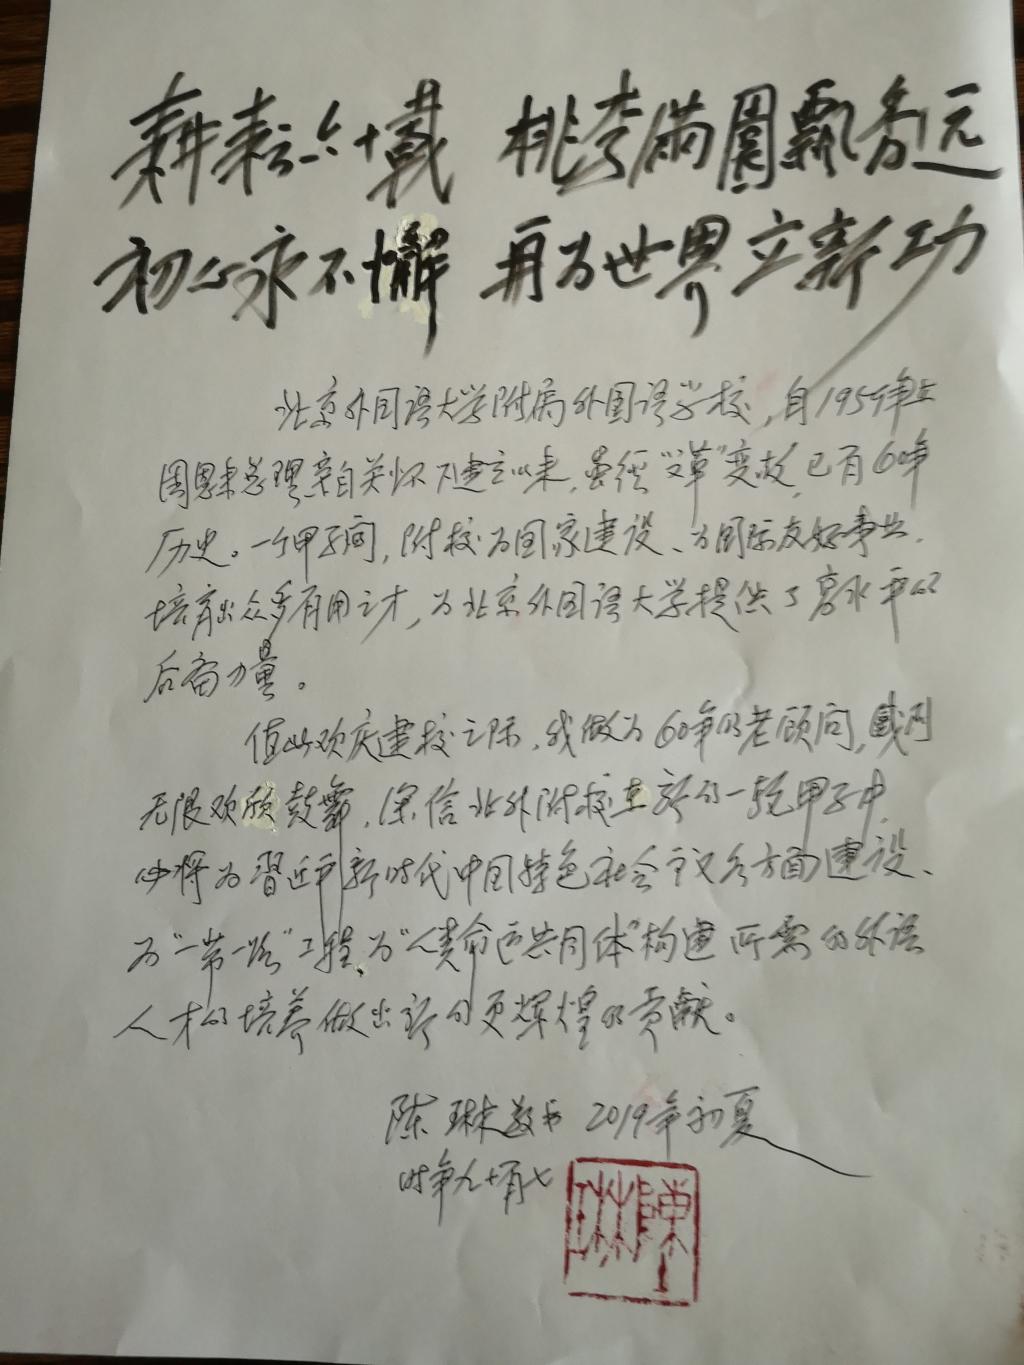 耕耘六十载 桃李满园飘香远
初心永不懈 再为世界立新功
北京外国语大学附属外国语学校，自1959年在
周恩来总理亲自关怀下建立以来，虽经“文革”变故，已有60年
历史。一个甲子间，附校为国家建设、为国际友好事业，
培育出众多有用之才，为北京外国语大学提供了高水平的
后备力量。
值此欢庆建校之际，我做为60年的老顾问，感到
无限欢欣鼓舞，深信北外附校在新的一轮甲子中，
必将为习近平新时代中国特色社会主义各方面建设、
为“一带一路”工程、为“人类命运共同体”构建所需的外语
人才的培养做出新的更辉煌的贡献。
陈琳敬书 2019年初夏
时年九十有七
陳琳